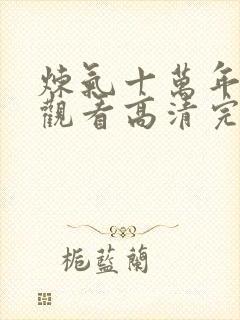 煉氣十萬年
觀看高清完
梔藍蘭